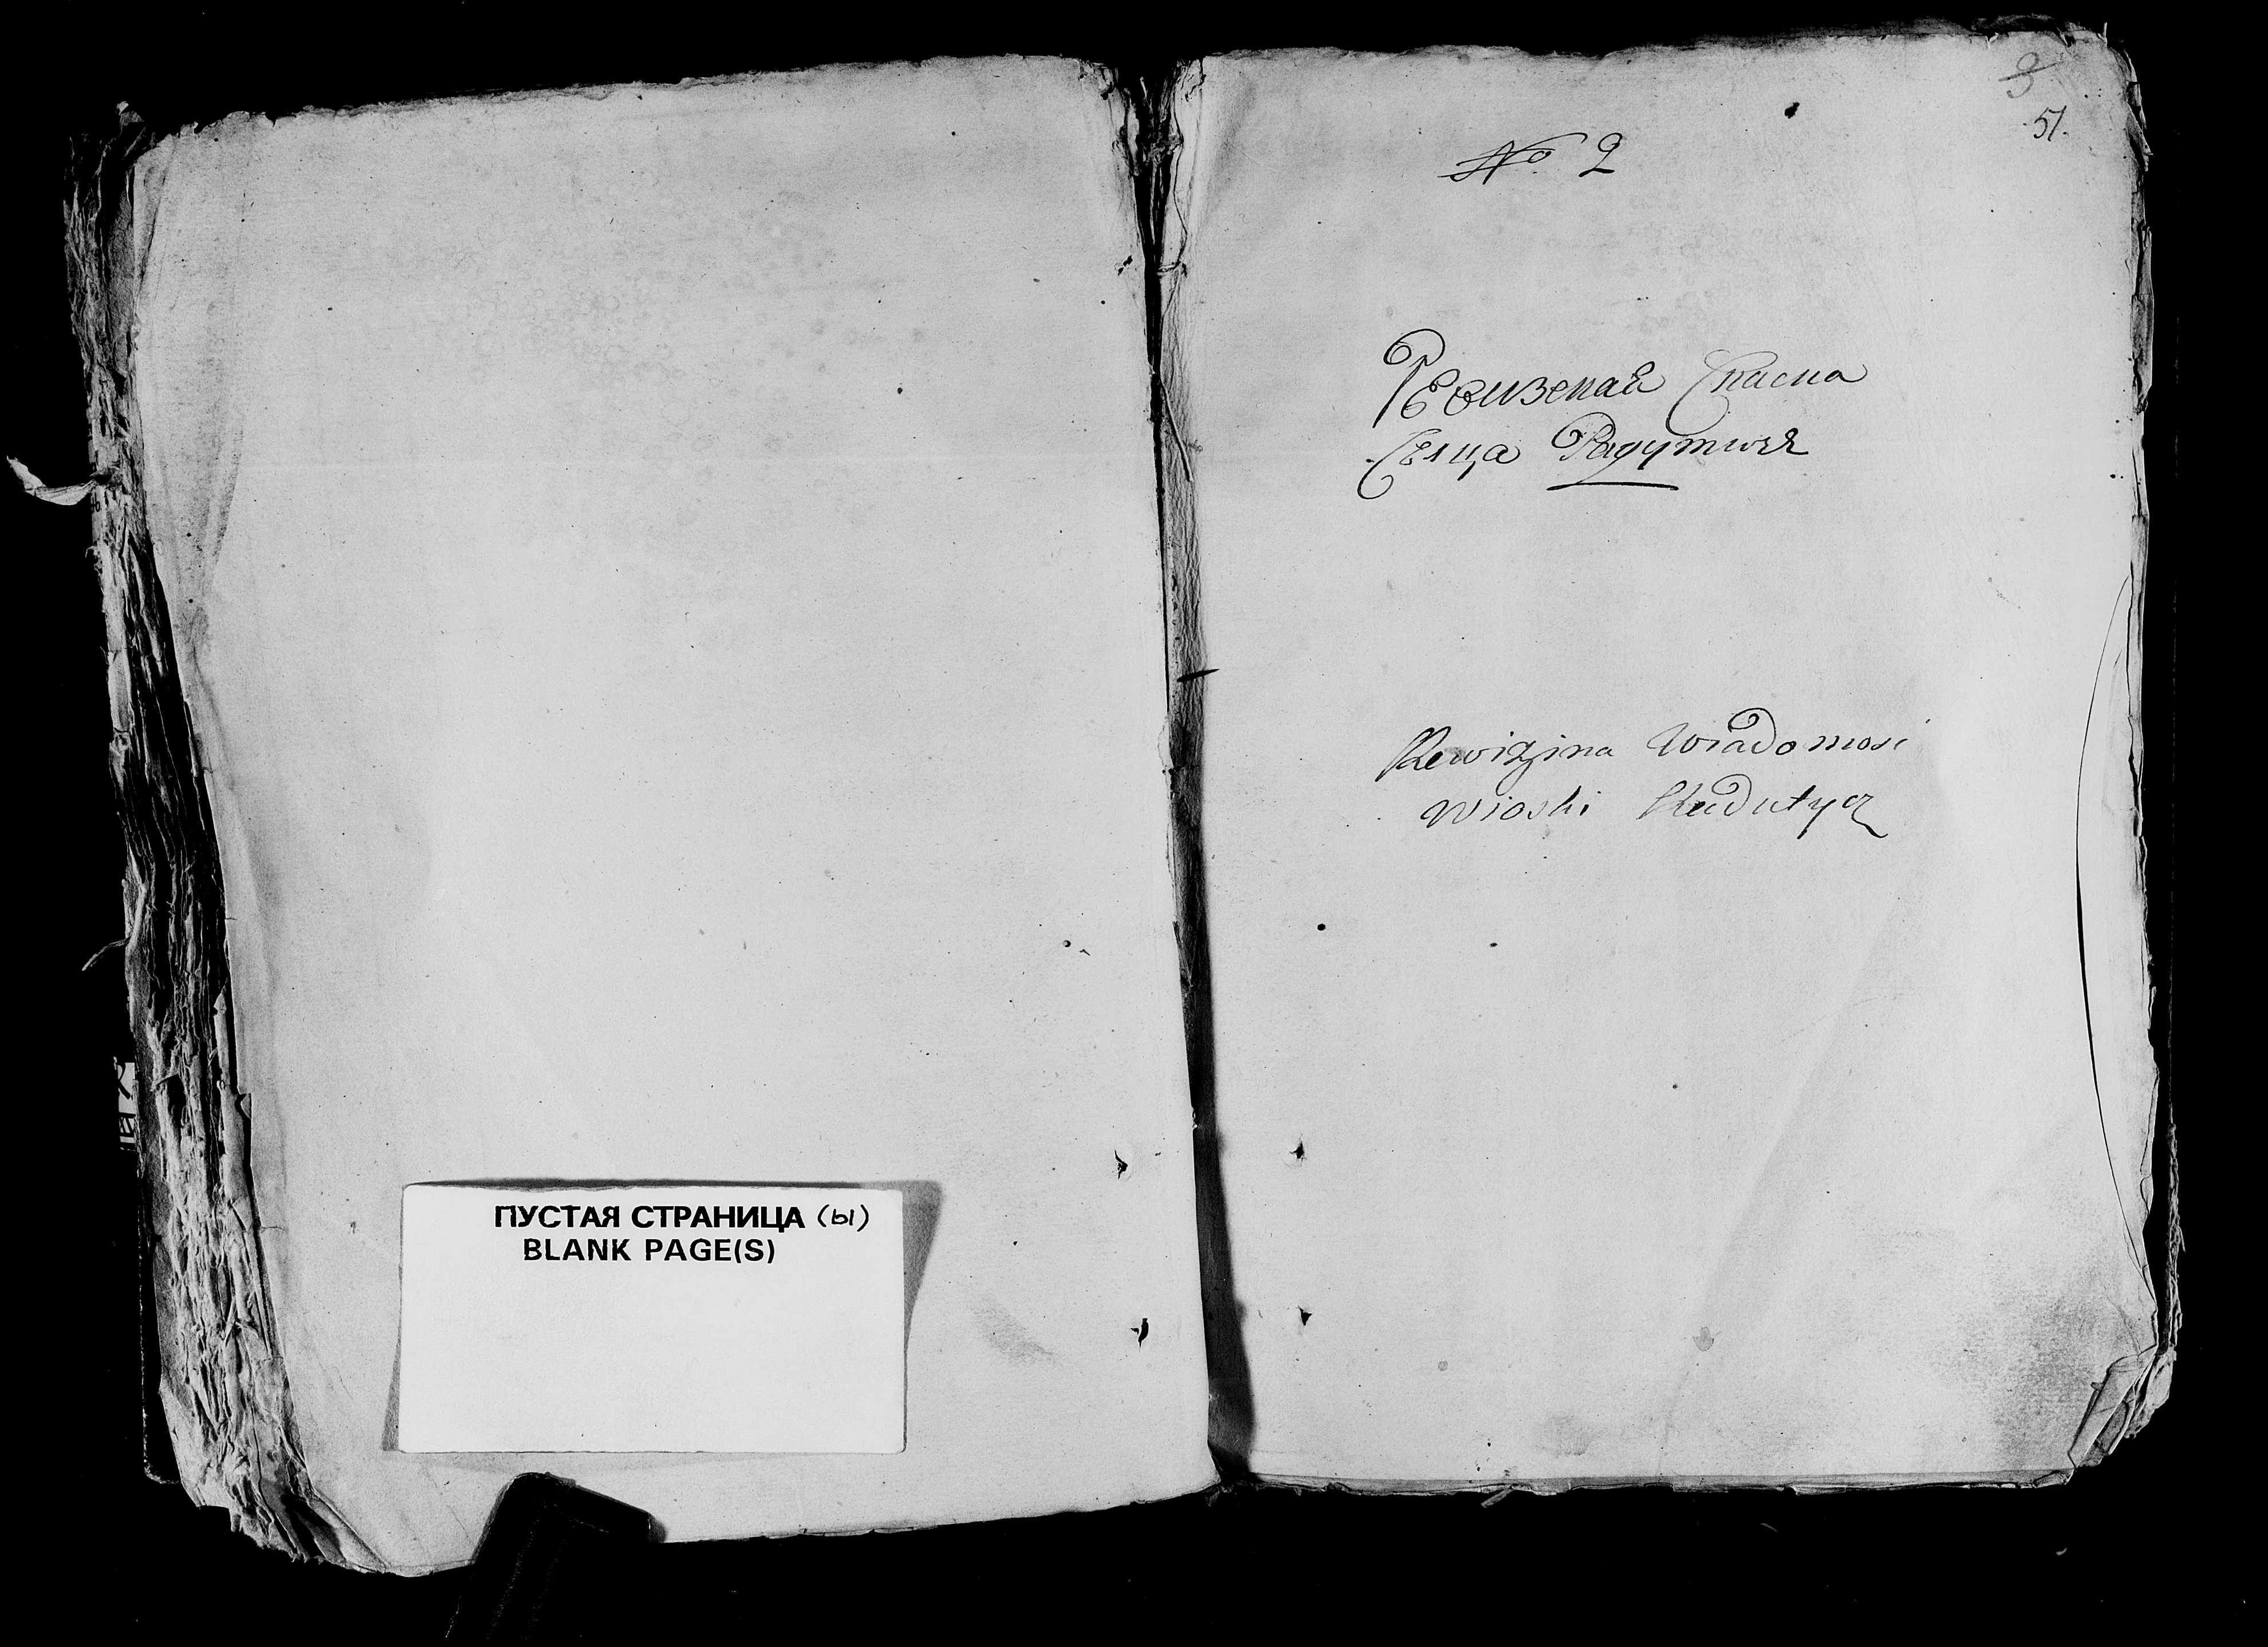 ПУСТАЯ СТРАНИЦА (ы)
BLANK PAGE(S)
3
51.
No 2
Ревизская Скаска
Селца Радутичь
Rewizjina Wiadomosc
Wioski Radutycz